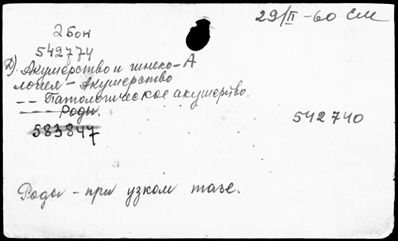 29/II-60 СМ
2 Бон
542774
д) Акушерство и гинеко-А
логия - Акушерство
-- Патологическое акушерство.
-- Роды.
542740
583847
Роды - при узком тазе.